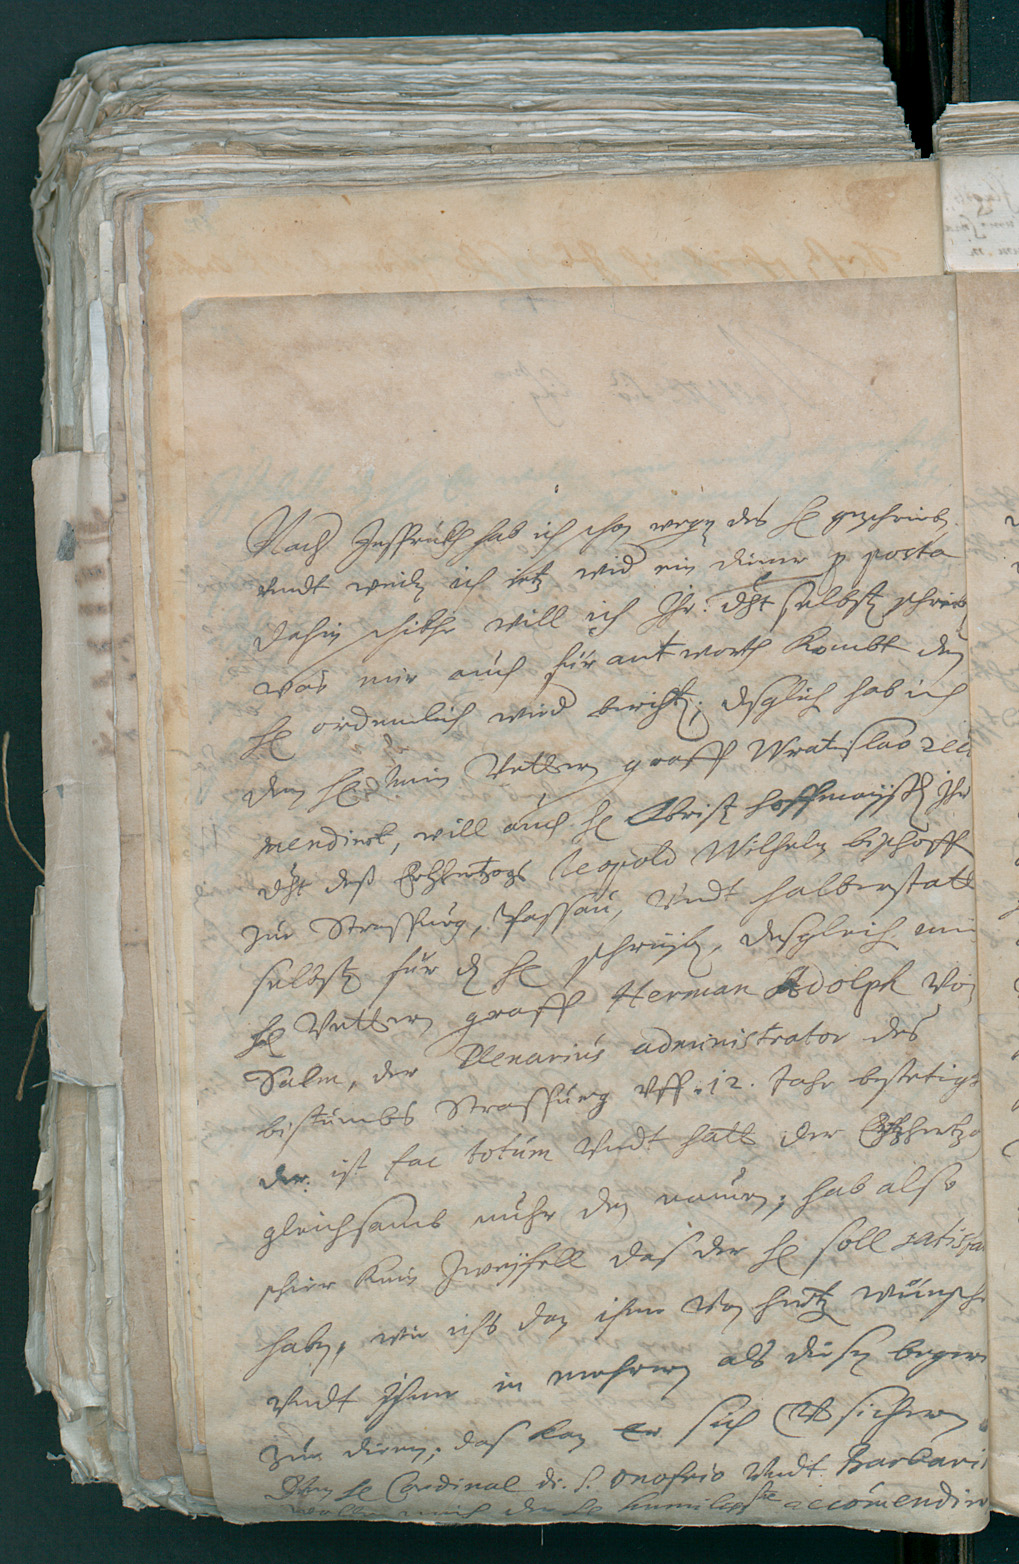 Nach Inspruckh hab ich schon wegen des H. geschrieben
undt weiln ich ietz wid ein diener p posta
dahin schikhe will ich Ihr: dht selbsten schreiben
was mir auch für antworth kombt den
H ordennlich wird bericht; desglich hab ich
den H. mein Vettern graff Wratislao recc
mendiert, will auch H Obrist hoffmaystern Ihr
dht deß Ertzhertzogs Leopold Wilhelm bischoff
zue Strassburg, Passau, undt halberstatt
selbsten für den H schreiben, desgleich mein
H Vettern graff Herman Adolph von
Salm, der Plenarius administrator des
bistumbs Strassburg uff .12. Jahr bestetigt
der ist fac totum undt hatt der Ertzhertzog
gleichsamb nuhr den namen, hab also
schier kein zweyfell das der H soll satisfa
haben, wie ichs dan ihme von hertzen wünsche
undt Ihme in mehrern als diesen begere
zue dienen, das kan Er sich versichern
Dem H Cardinal di S. Onofrio undt Barbarin
wollen mich der H humilissme accomendirn